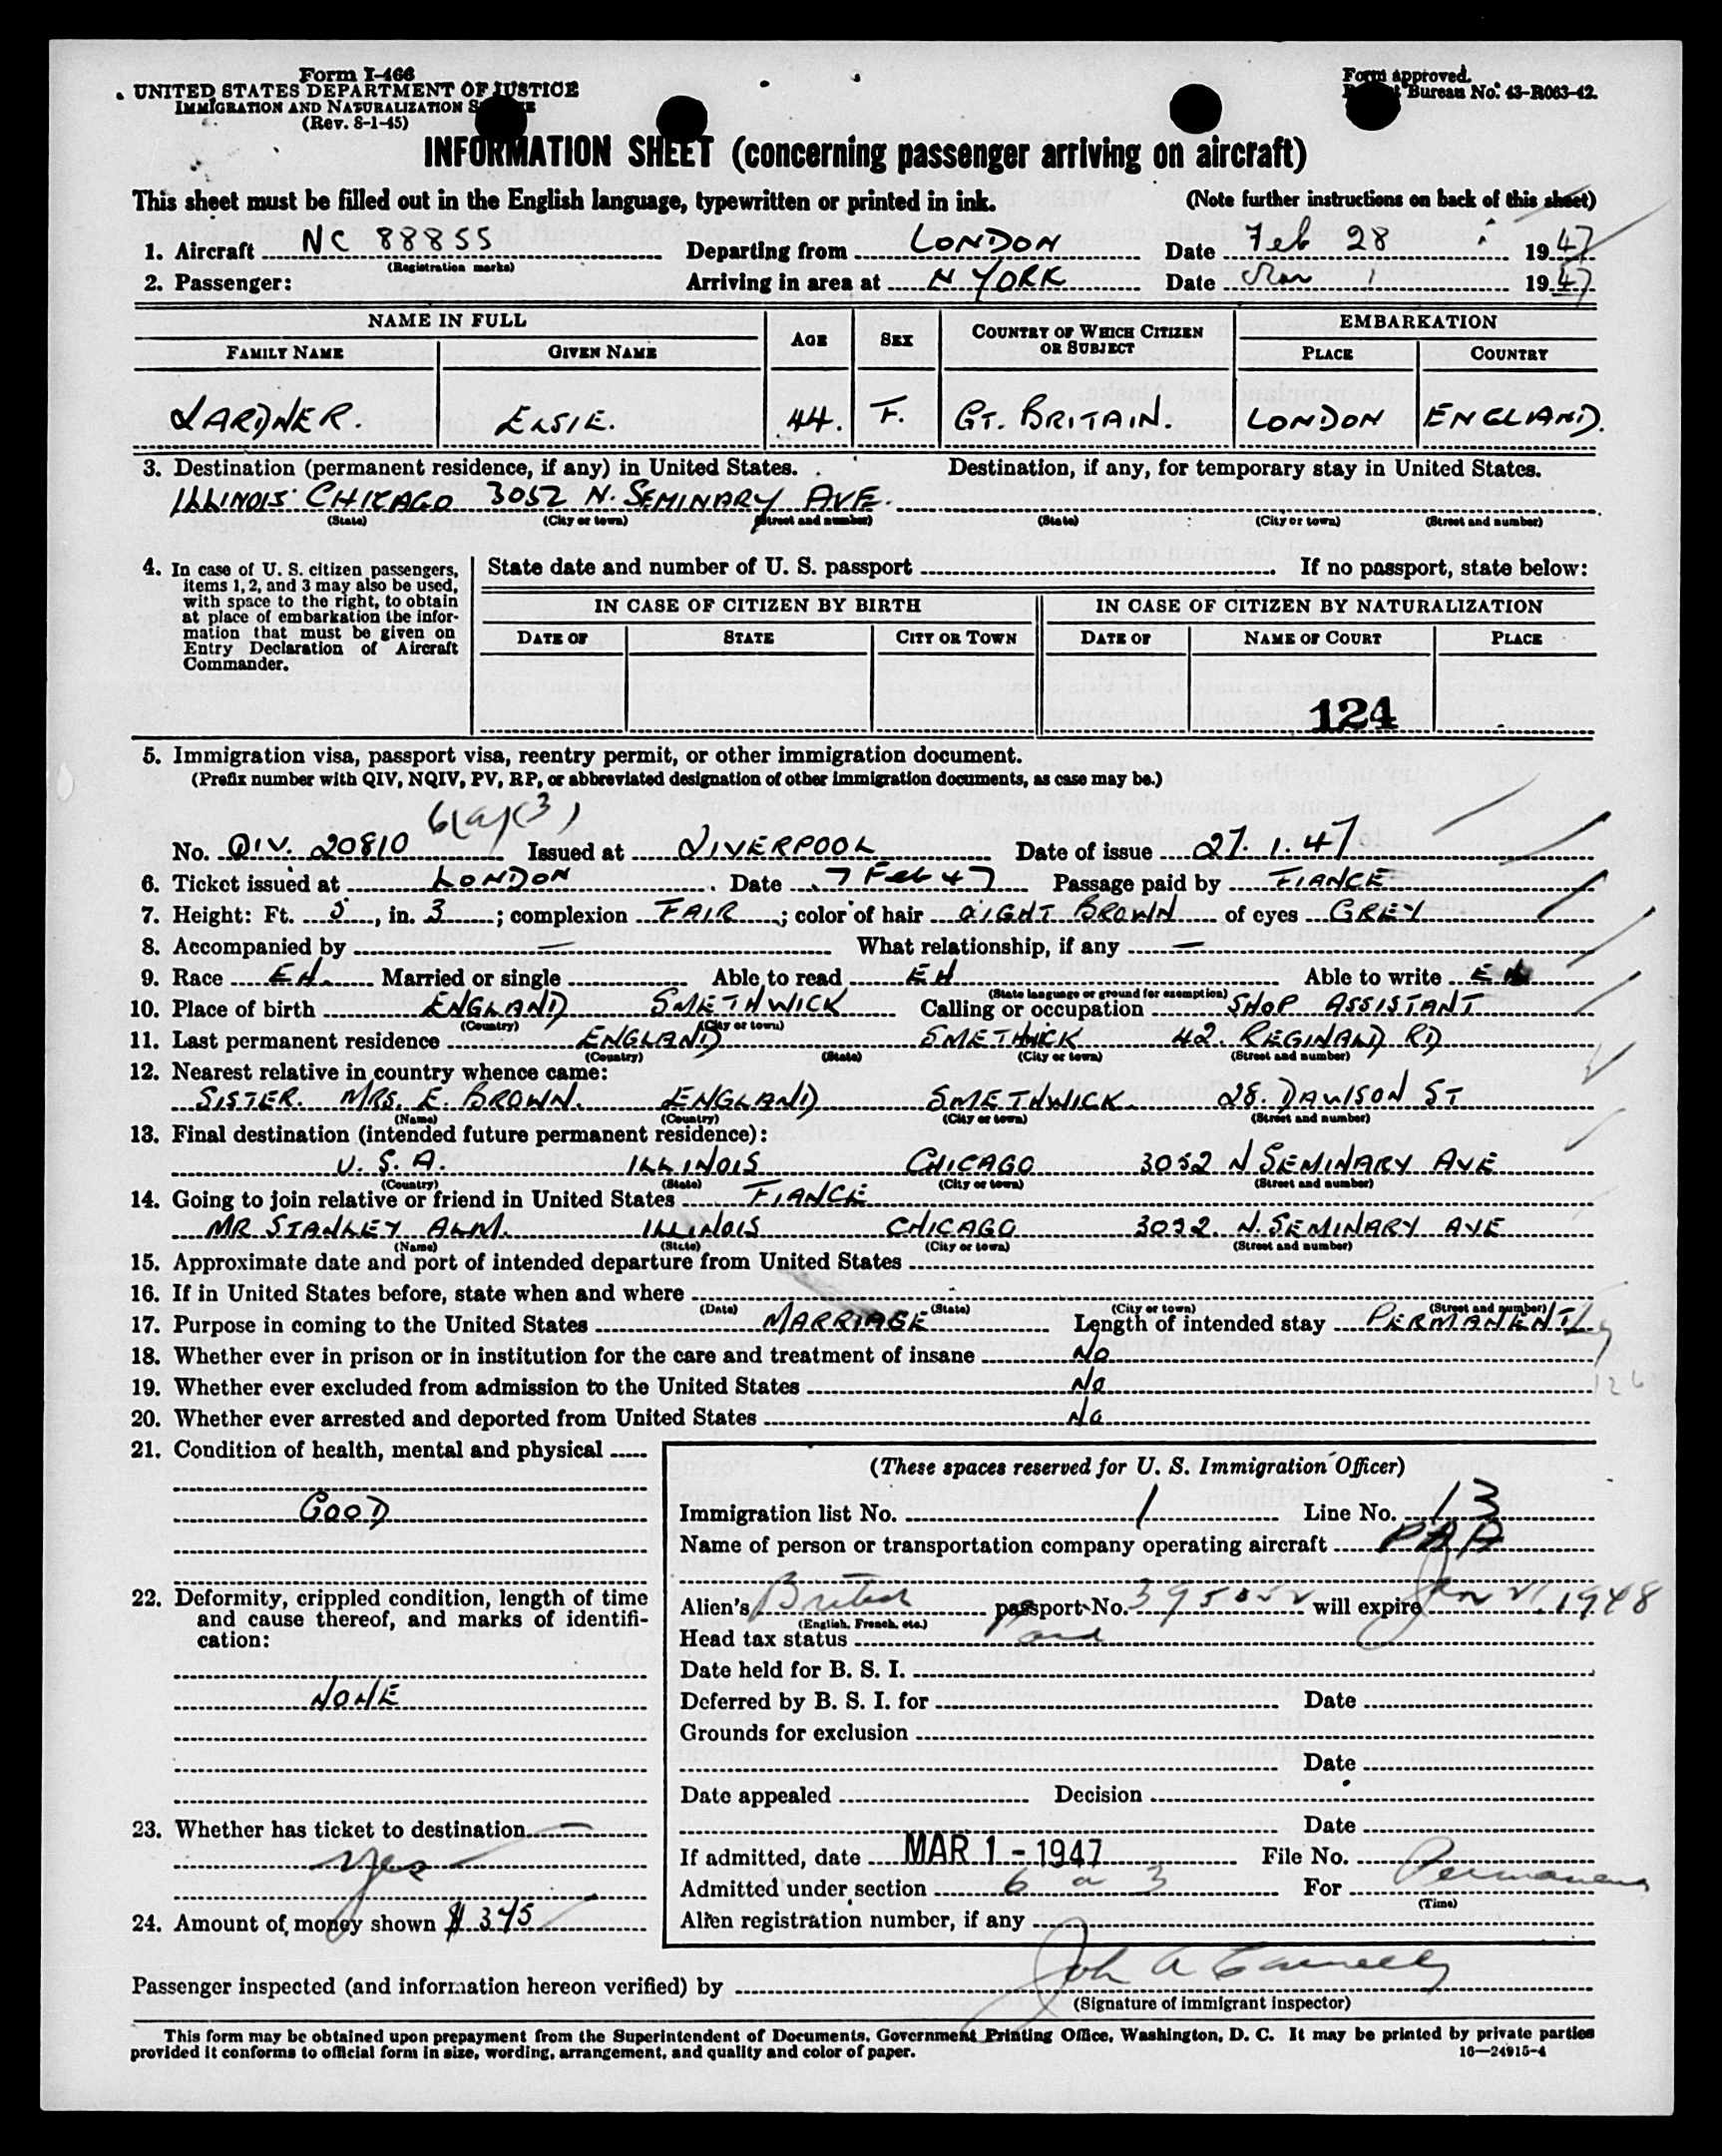 Form I-466
UNITED STATES DEPARTMENT OF JUSTICE
IMMIGRATION AND NATURALIZATION
(Rev. 8-1-45)
Form approved.
Bureau No. 43-R063-42.
INFORMATION SHEET (concerning passenger arriving on aircraft)
This sheet must be filled out in the English language, typewritten or printed in ink. (Note further instructions on back of this sheet)
1. Aircraft NC 88855 Departing from LONDON Date Feb 28 1947
(Registration marks)
2. Passenger: Arriving in area at N YORK Date Mar 1 1947
NAME IN FULL AGE SEX COUNTRY OF WHICH CITIZEN OR SUBJECT EMBARKATION
FAMILY NAME GIVEN NAME PLACE COUNTRY
LARDNER. ELSIE. 44. F. GT. BRITAIN. LONDON ENGLAND.
3. Destination (permanent residence, if any) in United States. Destination, if any, for temporary stay in United States.
ILLINOIS CHICAGO 3052 N. SEMINARY AVE.
(State) (City or town) (Street and number) (State) (City or town) (Street and number)
4. In case of U. S. citizen passengers, items 1, 2, and 3 may also be used, with space to the right, to obtain at place of embarkation the information that must be given on Entry Declaration of Aircraft Commander.
State date and number of U. S. passport If no passport, state below:
IN CASE OF CITIZEN BY BIRTH IN CASE OF CITIZEN BY NATURALIZATION
DATE OF STATE CITY OR TOWN DATE OF NAME OF COURT PLACE
124
5. Immigration visa, passport visa, reentry permit, or other immigration document.
(Prefix number with QIV, NQIV, PV, RP, or abbreviated designation of other immigration documents, as case may be.)
6(a)(3)
No. QIV. 20810 Issued at LIVERPOOL Date of issue 27. 1. 47
6. Ticket issued at LONDON Date 7 Feb 47 Passage paid by FIANCE
7. Height: Ft. 5, in. 3; complexion FAIR; color of hair LIGHT BROWN of eyes GREY
8. Accompanied by — What relationship, if any —
9. Race EH. Married or single Able to read EH Able to write EH
(State language or ground for exemption)
10. Place of birth ENGLAND SMETHWICK Calling or occupation SHOP ASSISTANT
(Country) (City or town)
11. Last permanent residence ENGLAND SMETHWICK 42. REGINALD RD
(Country) (State) (City or town) (Street and number)
12. Nearest relative in country whence came:
SISTER. MRS. E. BROWN. ENGLAND SMETHWICK. 28. DAWSON ST
(Name) (Country) (City or town) (Street and number)
13. Final destination (intended future permanent residence):
U. S. A. ILLINOIS CHICAGO 3052 N SEMINARY AVE
(Country) (State) (City or town) (Street and number)
14. Going to join relative or friend in United States FIANCE
MR STANLEY ALM. ILLINOIS CHICAGO 3032. N. SEMINARY AVE
(Name) (State) (City or town) (Street and number)
15. Approximate date and port of intended departure from United States
16. If in United States before, state when and where
(Date) (State) (City or town) (Street and number)
17. Purpose in coming to the United States MARRIAGE Length of intended stay PERMANENTLY
18. Whether ever in prison or in institution for the care and treatment of insane No
19. Whether ever excluded from admission to the United States No
126
20. Whether ever arrested and deported from United States No
21. Condition of health, mental and physical
GOOD
22. Deformity, crippled condition, length of time and cause thereof, and marks of identification:
NONE
23. Whether has ticket to destination
Yes
24. Amount of money shown $ 345
(These spaces reserved for U. S. Immigration Officer)
Immigration list No. 1 Line No. 13
Name of person or transportation company operating aircraft PAA
Alien's British passport No. 395052 will expire Jan 21 1948
(English, French, etc.)
Head tax status Paid
Date held for B. S. I.
Deferred by B. S. I. for Date
Grounds for exclusion
Date
Date appealed Decision
Date
If admitted, date MAR 1 - 1947 File No.
Admitted under section 6 a 3 For Permanent
(Time)
Alien registration number, if any
Passenger inspected (and information hereon verified) by John A
(Signature of immigrant inspector)
This form may be obtained upon prepayment from the Superintendent of Documents, Government Printing Office, Washington, D. C. It may be printed by private parties
provided it conforms to official form in size, wording, arrangement, and quality and color of paper. 16—24915-4